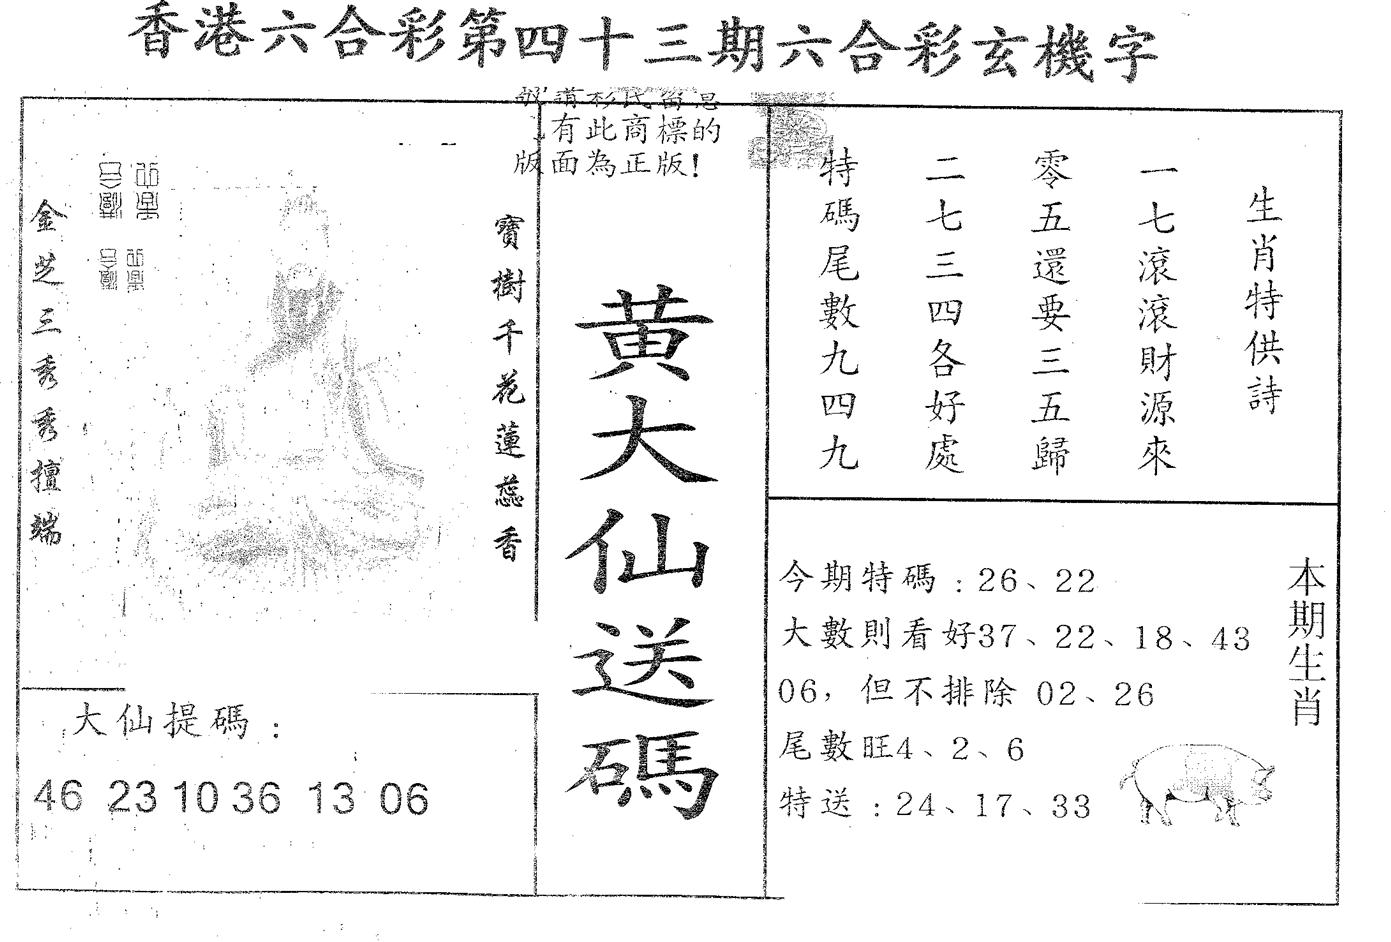 香港六合彩第四十三期六合彩玄機字
有此商標的
版面為正版!
生肖特供詩
一七滾滾財源來
零五還要三五歸
二七三四各好處
特碼尾數九四九
黃大仙送碼
寶樹千花蓮蕊香
金芝三秀秀擅端
大仙提碼:
46 23 10 36 13 06
本期生肖
今期特碼:26、22
大數則看好37、22、18、43
06,但不排除 02、26
尾數旺4、2、6
特送:24、17、33